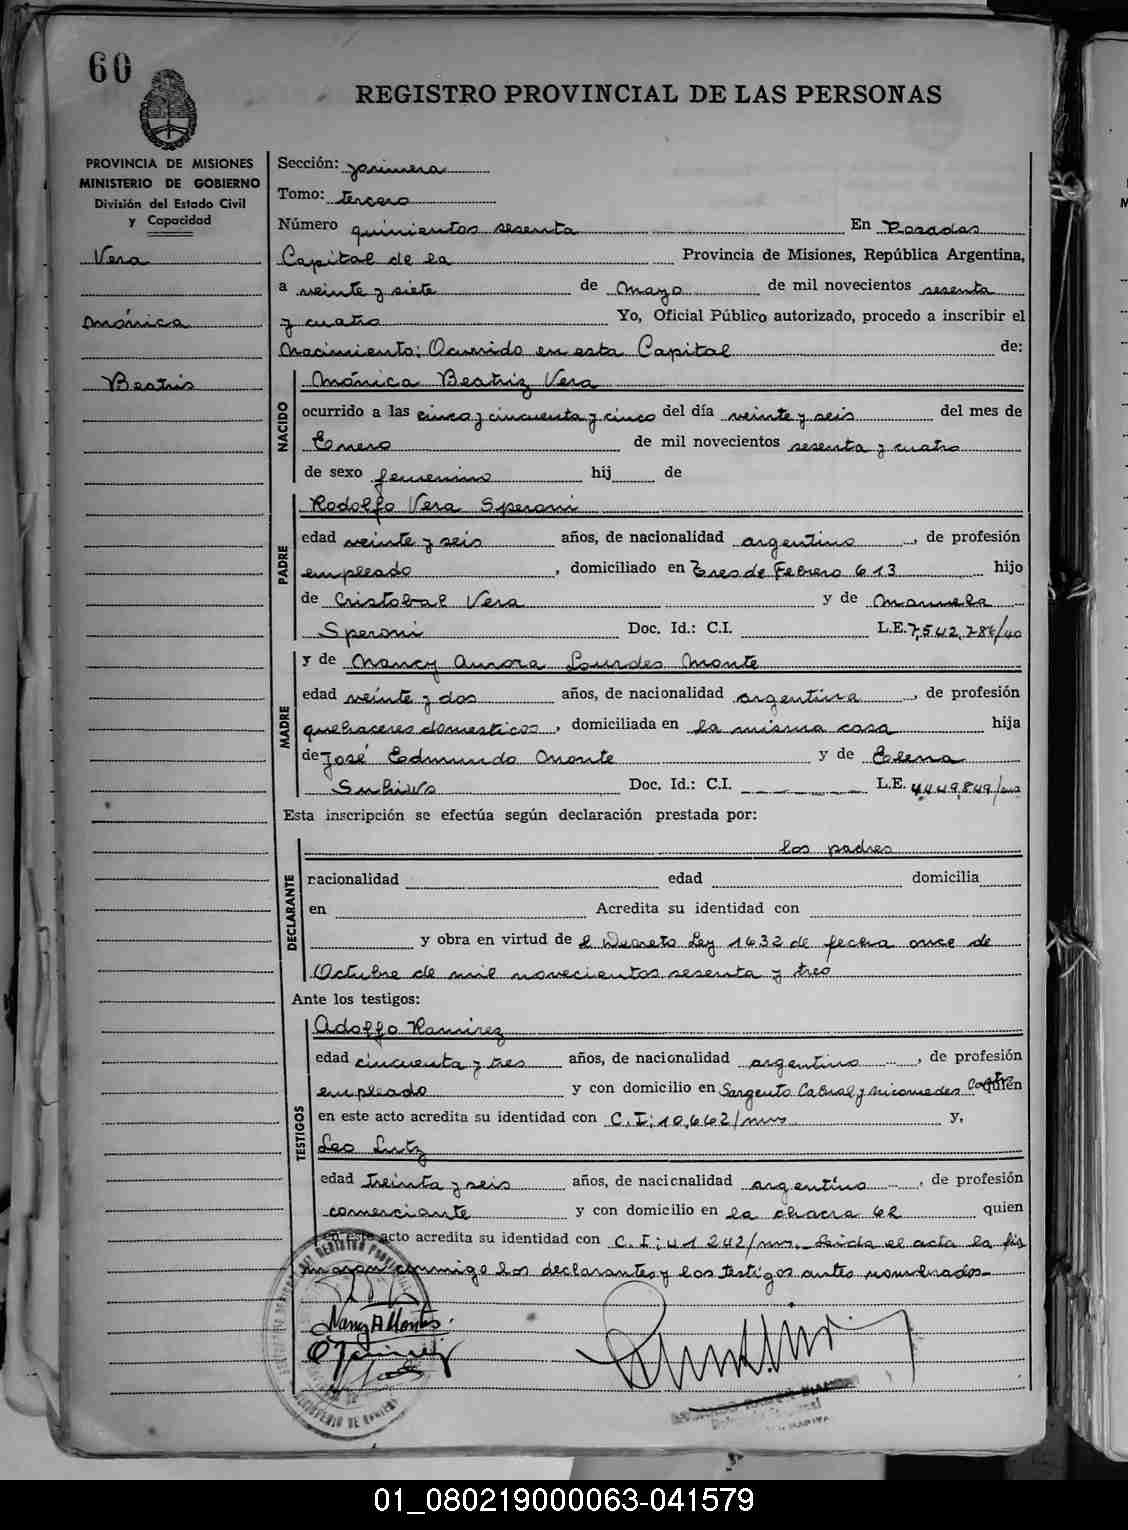 60
REGISTRO PROVINCIAL DE LAS PERSONAS
PROVINCIA DE MISIONES
MINISTERIO DE GOBIERNO
División del Estado Civil
y Capacidad
Vera
Mónica
Beatris
Sección: primera
Tomo: tercero
Número quinientos sesenta En Posadas
Capital de la Provincia de Misiones, República Argentina,
a veinte y siete de Mayo de mil novecientos sesenta
y cuatro Yo, Oficial Público autorizado, procedo a inscribir el
Nacimiento: Ocurrido en esta Capital de:
NACIDO
Mónica Beatriz Vera
ocurrido a las cinco y cincuenta y cinco del día veinte y seis del mes de
Enero de mil novecientos sesenta y cuatro
de sexo femenino hij de
PADRE
Rodolfo Vera Speroni
edad veinte y seis años, de nacionalidad argentino, de profesión
empleado, domiciliado en Tres de Febrero 613 hijo
de Cristobal Vera y de Manuela
Speroni Doc. Id.: C.I. L.E. 7.542.786/40
MADRE
y de Nancy Aurora Lourdes Monte
edad veinte y dos años, de nacionalidad argentina, de profesión
quehaceres domesticos, domiciliada en la misma casa hija
de José Edmundo Monte y de Elena
Doc. Id.: C.I. L.E. 4.449.849/
Esta inscripción se efectúa según declaración prestada por:
DECLARANTE
los padres
nacionalidad edad domicilia
en Acredita su identidad con
y obra en virtud de Decreto Ley 1432 de fecha once de
Octubre de mil novecientos sesenta y tres
Ante los testigos:
TESTIGOS
Adolfo Ramirez
edad cincuenta y tres años, de nacionalidad argentino, de profesión
empleado y con domicilio en Sargento Cabral y Nicomedes Castro quien
en este acto acredita su identidad con C.I: 10.662/mns y,
Leo Lutz
edad treinta y seis años, de nacionalidad argentino, de profesión
comerciante y con domicilio en la chacra 62 quien
en este acto acredita su identidad con C.I: 41242/mns. Leida el acta la fir
maron conmigo los declarantes y los testigos antes nombrados
01_080219000063-041579